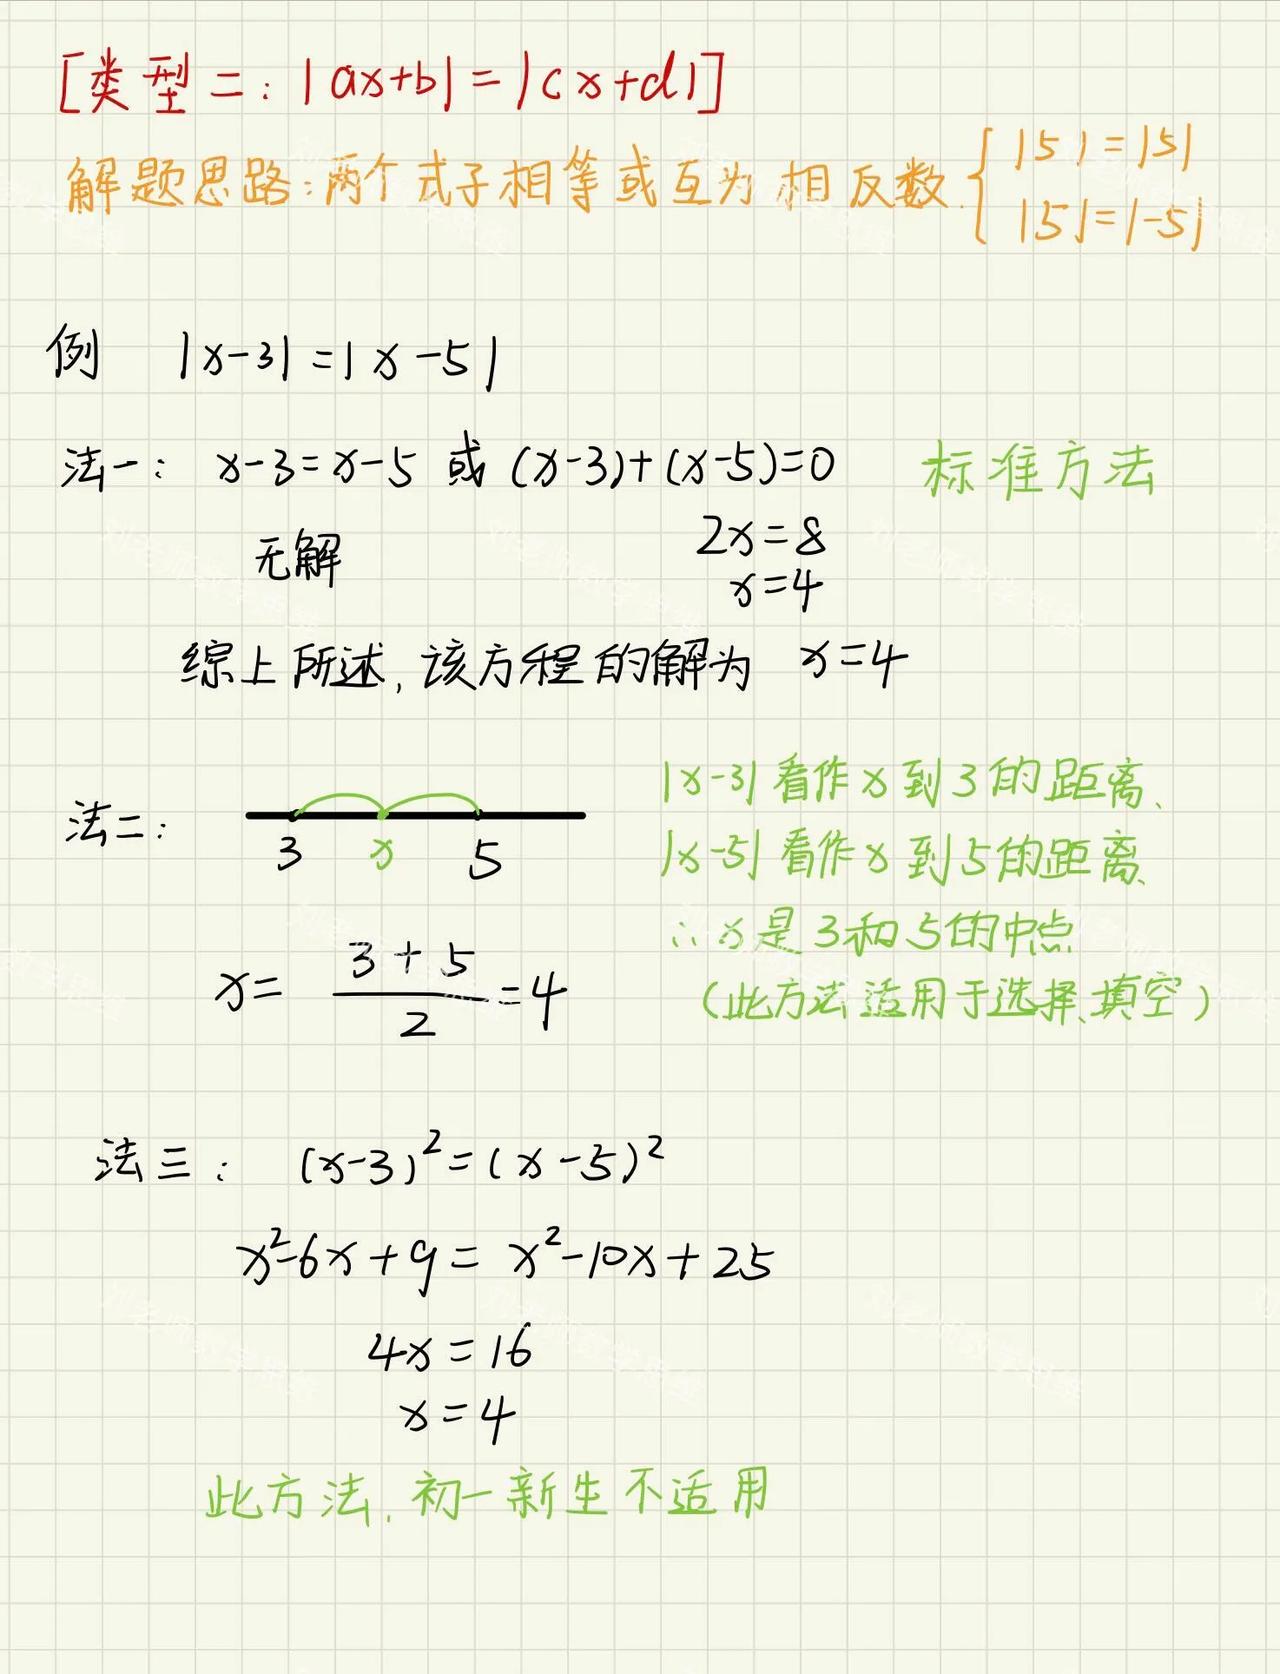 [类型二：|ax+b|=|cx+d|]
解题思路：两个式子相等或互为相反数. { |5|=|5|
|5|=|-5|
例 |x-3|=|x-5|
法一： x-3=x-5 或 (x-3)+(x-5)=0 标准方法
无解 2x=8
x=4
综上所述, 该方程的解为 x=4
法二： 3 x 5
|x-3| 看作 x 到 3 的距离、
|x-5| 看作 x 到 5 的距离、
∴ x 是 3 和 5 的中点
x= (3+5)/2 =4
(此方法适用于选择、填空)
法三： (x-3)²=(x-5)²
x²-6x+9= x²-10x+25
4x=16
x=4
此方法, 初一新生不适用
刘老师数学思维